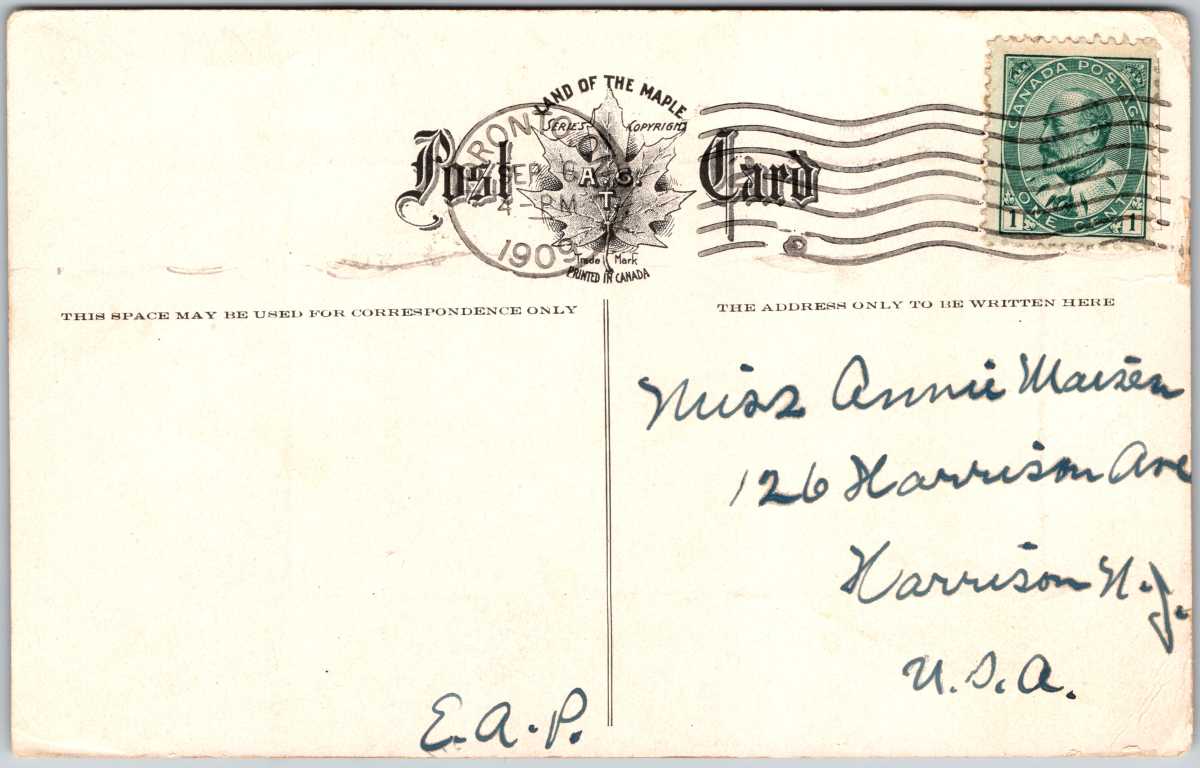 LAND OF THE MAPLE
SERIES COPYRIGHT
Post Card
A.G.
T.
Trade Mark
PRINTED IN CANADA
TORONTO
SEP
4-PM
1909
CANADA POSTAGE
1 ONE CENT 1
THIS SPACE MAY BE USED FOR CORRESPONDENCE ONLY
THE ADDRESS ONLY TO BE WRITTEN HERE
Miss Annie Maisen
126 Harrison Ave
Harrison N.J.
U.S.A.
E.A.P.